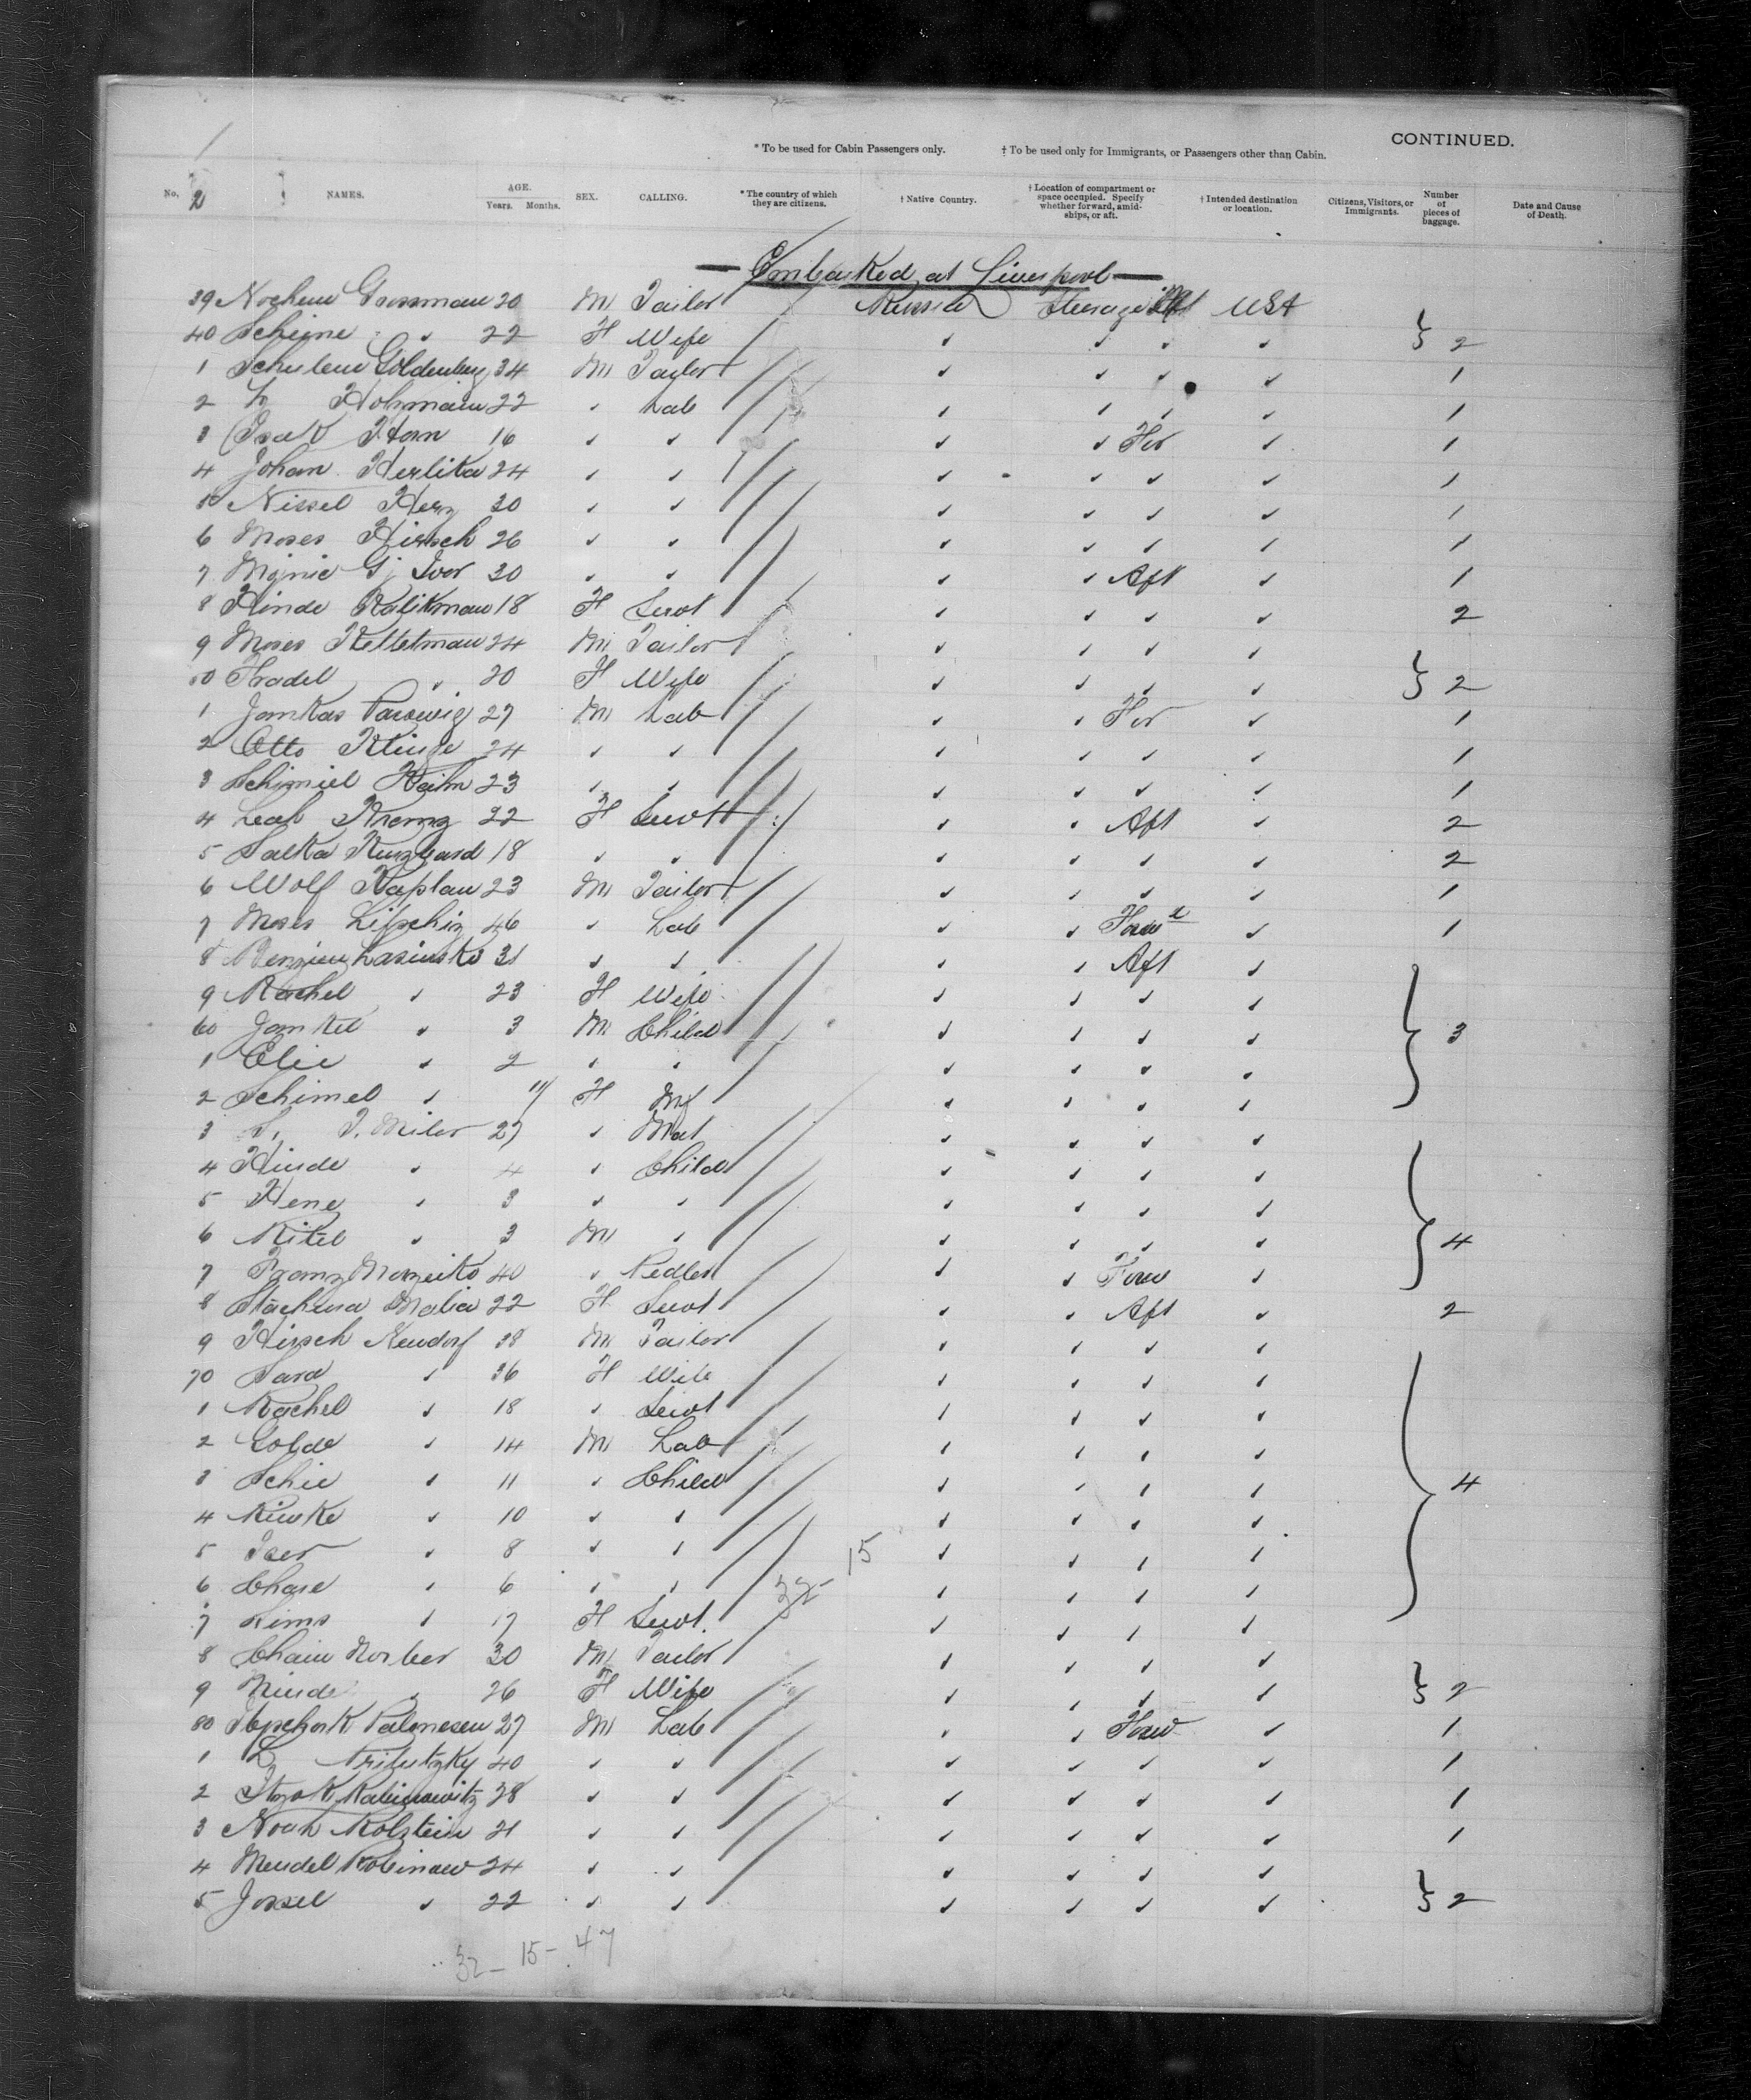 CONTINUED.
* To be used for Cabin Passengers only. † To be used only for Immigrants, or Passengers other than Cabin.
No. 2 NAMES. AGE. Years. Months. SEX. CALLING. * The country of which they are citizens. † Native Country. † Location of compartment or space occupied. Specify whether forward, amidships, or aft. † Intended destination or location. Citizens, Visitors, or Immigrants. Number of pieces of baggage. Date and Cause of Death.
— Embarked at Liverpool —
39 Nochum Grossman 20 M Tailor Russia Steerage Aft USA
40 Scheine " 22 F Wife ✓ ✓ ✓ ✓ } 2
1 Schulem Goldenberg 34 M Tailor ✓ ✓ ✓ ✓ 1
2 22 ✓ Lab ✓ ✓ ✓ ✓ 1
3 Isak Horn 16 ✓ ✓ ✓ ✓ For ✓ 1
4 Johan Herlika 24 ✓ ✓ ✓ ✓ ✓ ✓ 1
5 Nissel Herz 30 ✓ ✓ ✓ ✓ ✓ ✓ 1
6 Moses Hirsch 26 ✓ ✓ ✓ ✓ ✓ ✓ 1
7 30 ✓ ✓ ✓ ✓ Aft ✓ 1
8 Hinde Kalikman 18 F Servt ✓ ✓ ✓ ✓ 2
9 Moses Kettelman 24 M Tailor ✓ ✓ ✓ ✓
50 Fradel " 20 F Wife ✓ ✓ ✓ ✓ } 2
1 Jankas 27 M Lab ✓ ✓ For ✓ 1
2 Otto Klinge 24 ✓ ✓ ✓ ✓ ✓ ✓ 1
3 Schimiel Kaihn 23 ✓ ✓ ✓ ✓ ✓ ✓ 1
4 Leah 22 F Servt ✓ ✓ Aft ✓ 2
5 Salka 18 ✓ ✓ ✓ ✓ ✓ ✓ 2
6 Wolf Kaplan 23 M Tailor ✓ ✓ ✓ ✓ 1
7 Moses Lipschiz 46 ✓ Lab ✓ ✓ Forwd ✓ 1
8 Lasinsko 31 ✓ ✓ ✓ ✓ Aft ✓
9 Rachel ✓ 23 F Wife ✓ ✓ ✓ ✓
60 Jankel ✓ 3 M Child ✓ ✓ ✓ ✓ } 3
1 Elie ✓ 2 ✓ ✓ ✓ ✓ ✓ ✓
2 Schimel ✓ 11 F Inf ✓ ✓ ✓ ✓
3 S. T. Miler 27 ✓ Mat ✓ ✓ ✓ ✓
4 Hinde ✓ 4 ✓ Child ✓ ✓ ✓ ✓
5 Hene ✓ 3 ✓ ✓ ✓ ✓ ✓ ✓
6 Kitel ✓ 3 M ✓ ✓ ✓ ✓ ✓ } 4
7 Franz Mozeiko 40 ✓ Pedler ✓ ✓ Forw ✓
8 Stachura Malia 22 F Servt ✓ ✓ Aft ✓ 2
9 Hirsch Neudorf 38 M Tailor ✓ ✓ ✓ ✓
70 Sara ✓ 36 F Wife ✓ ✓ ✓ ✓
1 Rachel ✓ 18 ✓ Servt ✓ ✓ ✓ ✓
2 Golde ✓ 14 M Lab ✓ ✓ ✓ ✓
3 Schie ✓ 11 ✓ Child ✓ ✓ ✓ ✓ } 4
4 Riwke ✓ 10 ✓ ✓ ✓ ✓ ✓ ✓
5 Iser ✓ 8 ✓ ✓ 15 ✓ ✓ ✓ ✓
6 Chase ✓ 6 ✓ ✓ 32- ✓ ✓ ✓ ✓
7 ✓ 17 F Servt. ✓ ✓ ✓ ✓
8 Chaim 30 M Tailor ✓ ✓ ✓ ✓
9 Minde ✓ 26 F Wife ✓ ✓ ✓ ✓ } 2
80 27 M Lab ✓ ✓ Forw ✓ 1
1 Prilutzky 40 ✓ ✓ ✓ ✓ ✓ ✓ 1
2 Itzok Rabinowitz 38 ✓ ✓ ✓ ✓ ✓ ✓ 1
3 Noah Rolstein 21 ✓ ✓ ✓ ✓ ✓ ✓ 1
4 Mendel Robinow 24 ✓ ✓ ✓ ✓ ✓ ✓
5 Jossel ✓ 22 ✓ ✓ ✓ ✓ ✓ ✓ } 2
32- 15- 47